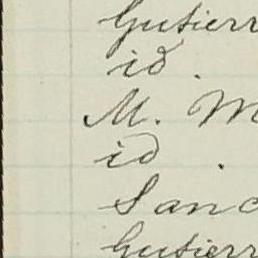 Gutierr
id .
M. M
id .
Sanc
Gutierr